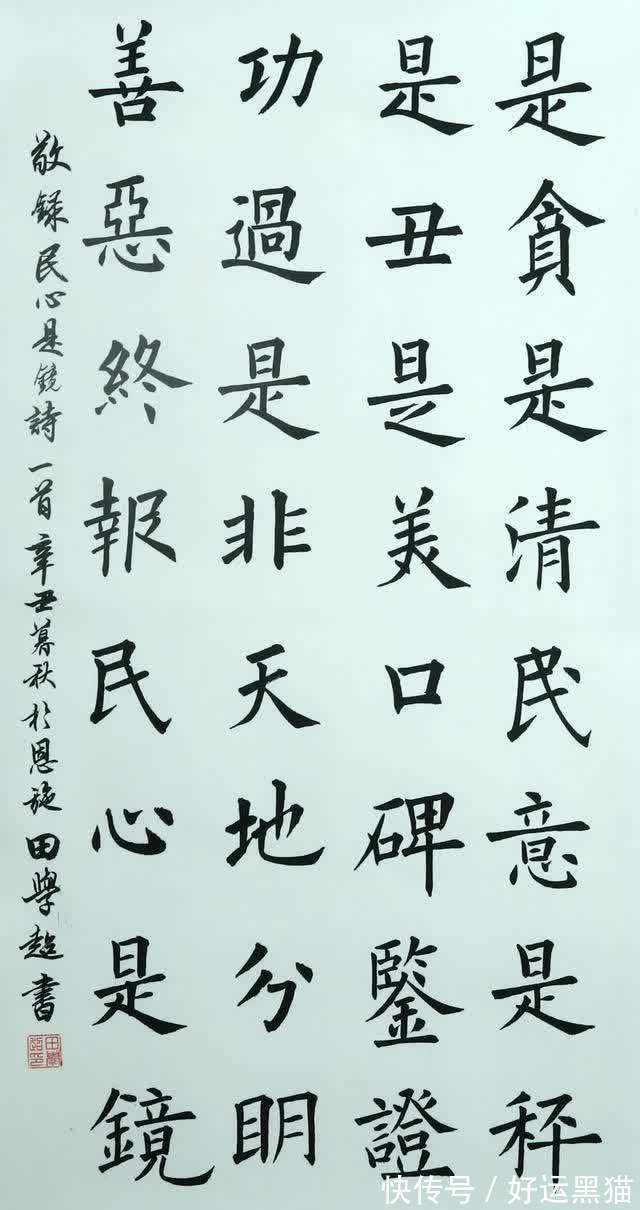 是貪是清民意是秤
是丑是美口碑鑒證
功過是非天地分明
善惡終報民心是鏡
敬録民心是鏡詩一首辛丑暮秋於恩施田學超書
快传号/好运黑猫